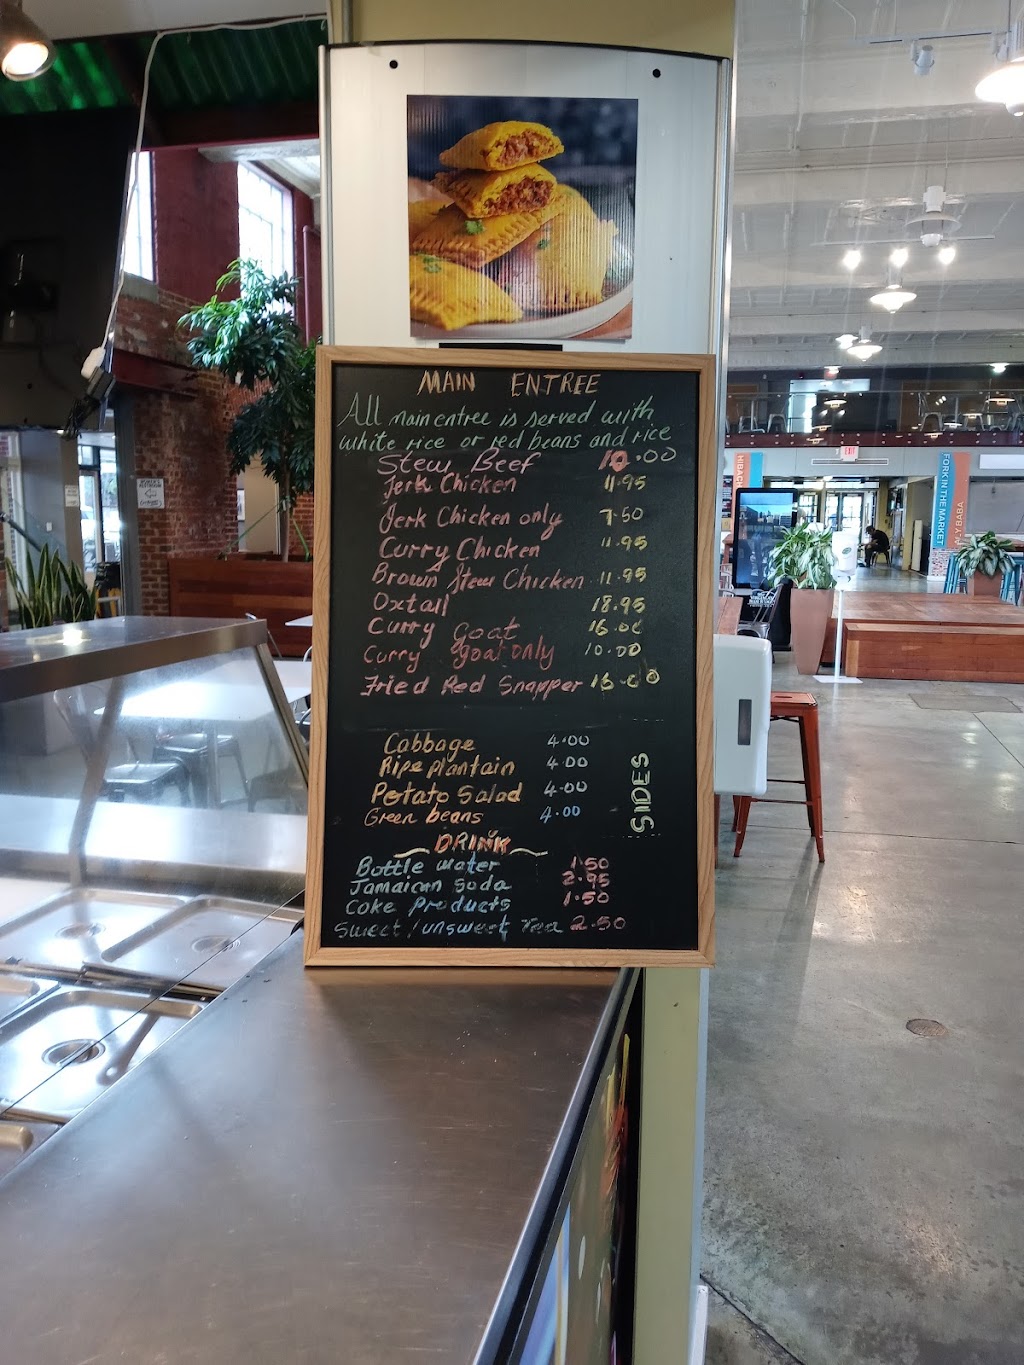 MAIN ENTREE
All main entree is served with
white rice or red beans and rice
Stew Beef 10.00
Jerk Chicken 11.95
Jerk Chicken only 7.50
Curry Chicken 11.95
Brown Stew Chicken 11.95
Oxtail 18.95
Curry goat 16.00
Curry goat only 10.00
Fried Red Snapper 16.00
Cabbage 4.00
Ripe plantain 4.00
Potato Salad 4.00
Green beans 4.00
SIDES
DRINK
Bottle water 1.50
Jamaican Soda 2.95
Coke Products 1.50
Sweet / unsweet Tea 2.50
EXIT
FORK IN THE MARKET